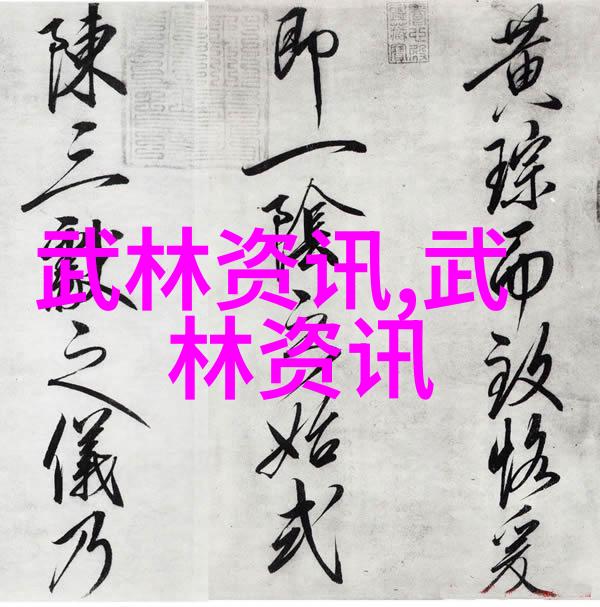 黄琮而致恪爰
即一陰始式
陳三獻之儀乃
武林资讯,武
林资讯